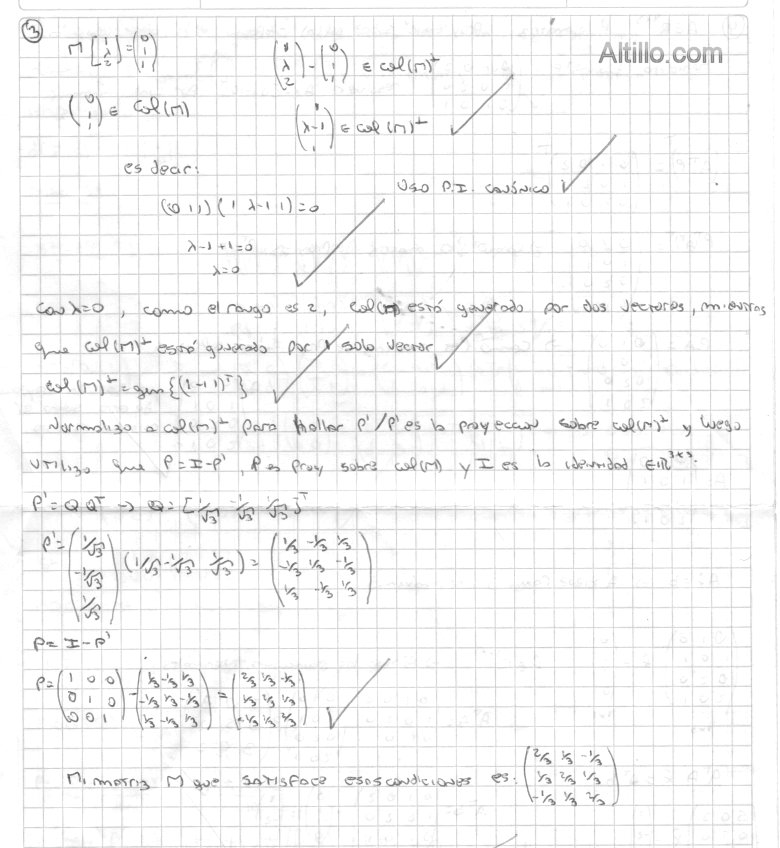 ③
M [1 λ 2] = (0 1 1)
(1 λ 2) - (0 1 1) ∈ col(M)⊥
Altillo.com
(0 1 1) ∈ Col(M)
(1 λ-1 1) ∈ col(M)⊥
es decir:
USO P.I. CANÓNICO
(0 1 1) (1 λ-1 1) = 0
λ-1+1=0
λ=0
Con λ=0, como el rango es 2, col(M) está generado por dos vectores, mientras
que col(M)⊥ está generado por 1 solo vector
col(M)⊥ = gen{(1 -1 1)ᵀ}
Normalizo a col(M)⊥ para hallar P'/P' es la proyeccion sobre col(M)⊥ y luego
utilizo que P=I-P', P es proy sobre col(M) y I es la identidad ∈ ℝ³ˣ³.
P' = Q Qᵀ → Q = [1/√3 -1/√3 1/√3]ᵀ
P' = (1/√3 -1/√3 1/√3) (1/√3 -1/√3 1/√3) = (1/3 -1/3 1/3 -1/3 1/3 -1/3 1/3 -1/3 1/3)
P = I - P'
P = (1 0 0 0 1 0 0 0 1) - (1/3 -1/3 1/3 -1/3 1/3 -1/3 1/3 -1/3 1/3) = (2/3 1/3 -1/3 1/3 2/3 1/3 -1/3 1/3 2/3)
Mi matriz M que satisface esas condiciones es: (2/3 1/3 -1/3 1/3 2/3 1/3 -1/3 1/3 2/3)